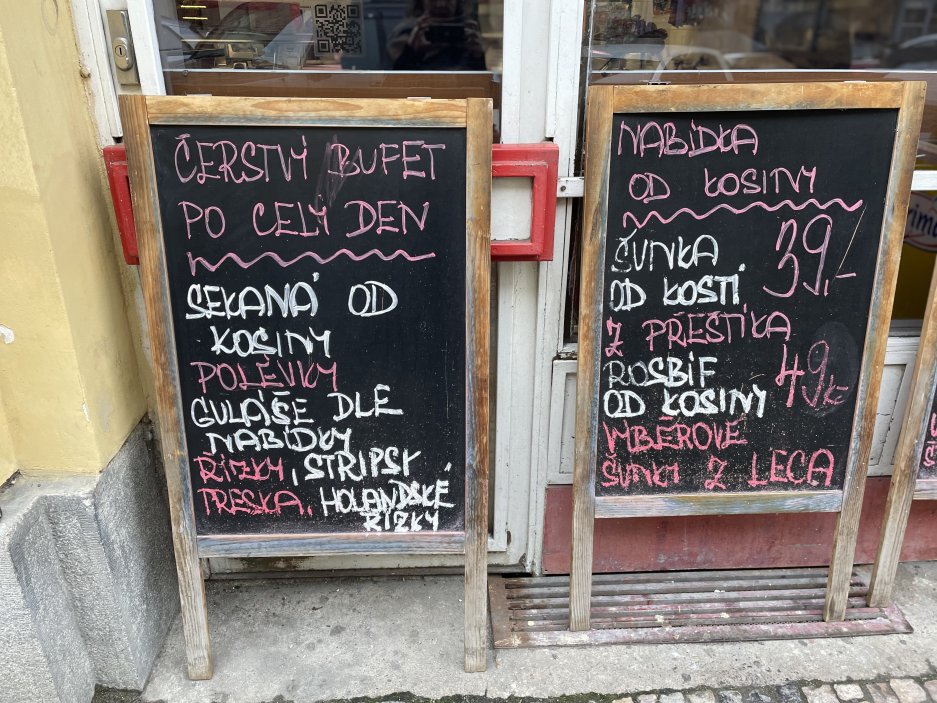 ČERSTVÝ BUFET
PO CELÝ DEN
SEKANÁ OD
KOSINY
POLÉVKY
GULÁŠE DLE
NABÍDKY
ŘÍZKY, STRIPSY,
PRESKA, HOLANDSKÉ
ŘÍZKY
NABÍDKA
OD KOSINY
ŠUNKA 39,-
OD KOSTI
Z PŘEŠTÍKA
ROSBIF 49Kč
OD KOSINY
VÝBĚROVÉ
ŠUNKY Z LECA